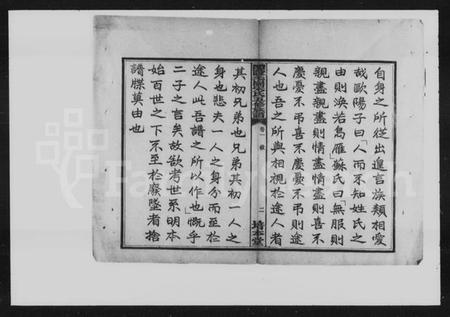 自身之所從出遑言族類相愛
哉歐陽子曰人而不知姓氏之
由則渙若鳥雁蘇氏曰無服則
親盡親盡則情盡情盡則喜不
慶憂不弔喜不慶憂不弔則途
人也吾之所與相視於途人者
卷一 叙
二
培本堂
其初兄弟也兄弟其初一人之
身也悲夫一人之身分而至於
途人此吾譜之所以作也慨乎
二子之言矣故欲考世系明本
始百世之下不至於廢墜者捨
譜牒莫由也